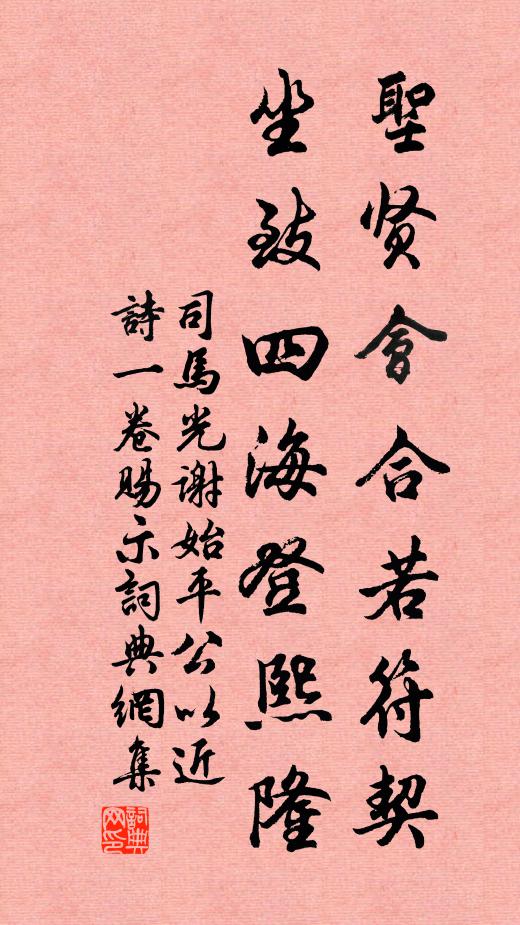 聖贤會合若符契
坐致四海登熙隆
司馬光谢始平公以近
詩一卷賜示詞典網集
詞典网印